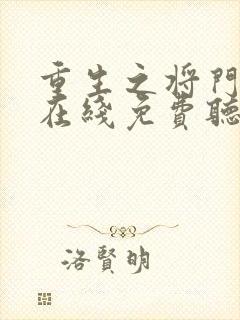 重生之将門
在綫免費聽
洛賢明